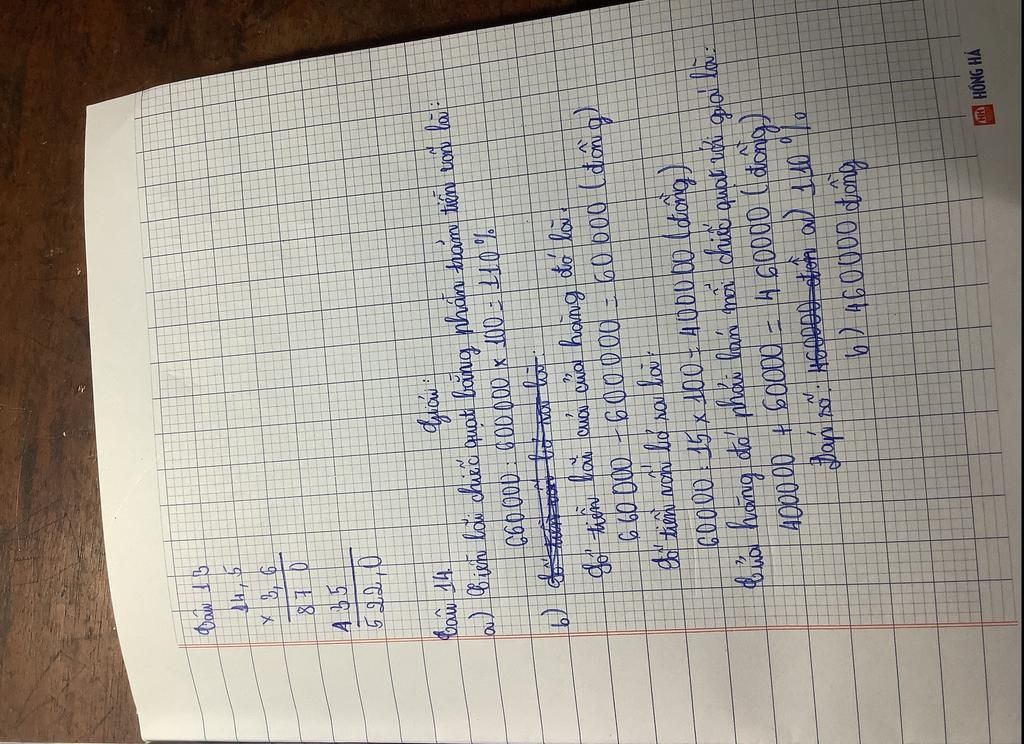 Câu 13
14,5
x 3,6
870
435
522,0
Câu 14
Giải:
a) Tiền bán chiếc quạt bằng phần trăm tiền vốn là:
660000 : 600000 x 100 = 110%
b) Số tiền vốn bỏ ra là:
Số tiền lãi của cửa hàng đó là:
660000 - 600000 = 60000 (đồng)
Số tiền vốn bỏ ra là:
60000 : 15 x 100 = 400000 (đồng)
Cửa hàng đó phải bán mỗi chiếc quạt với giá là:
400000 + 60000 = 460000 (đồng)
Đáp số: 460000 đồn a) 110 %
b) 460000 đồng
HỒNG HÀ